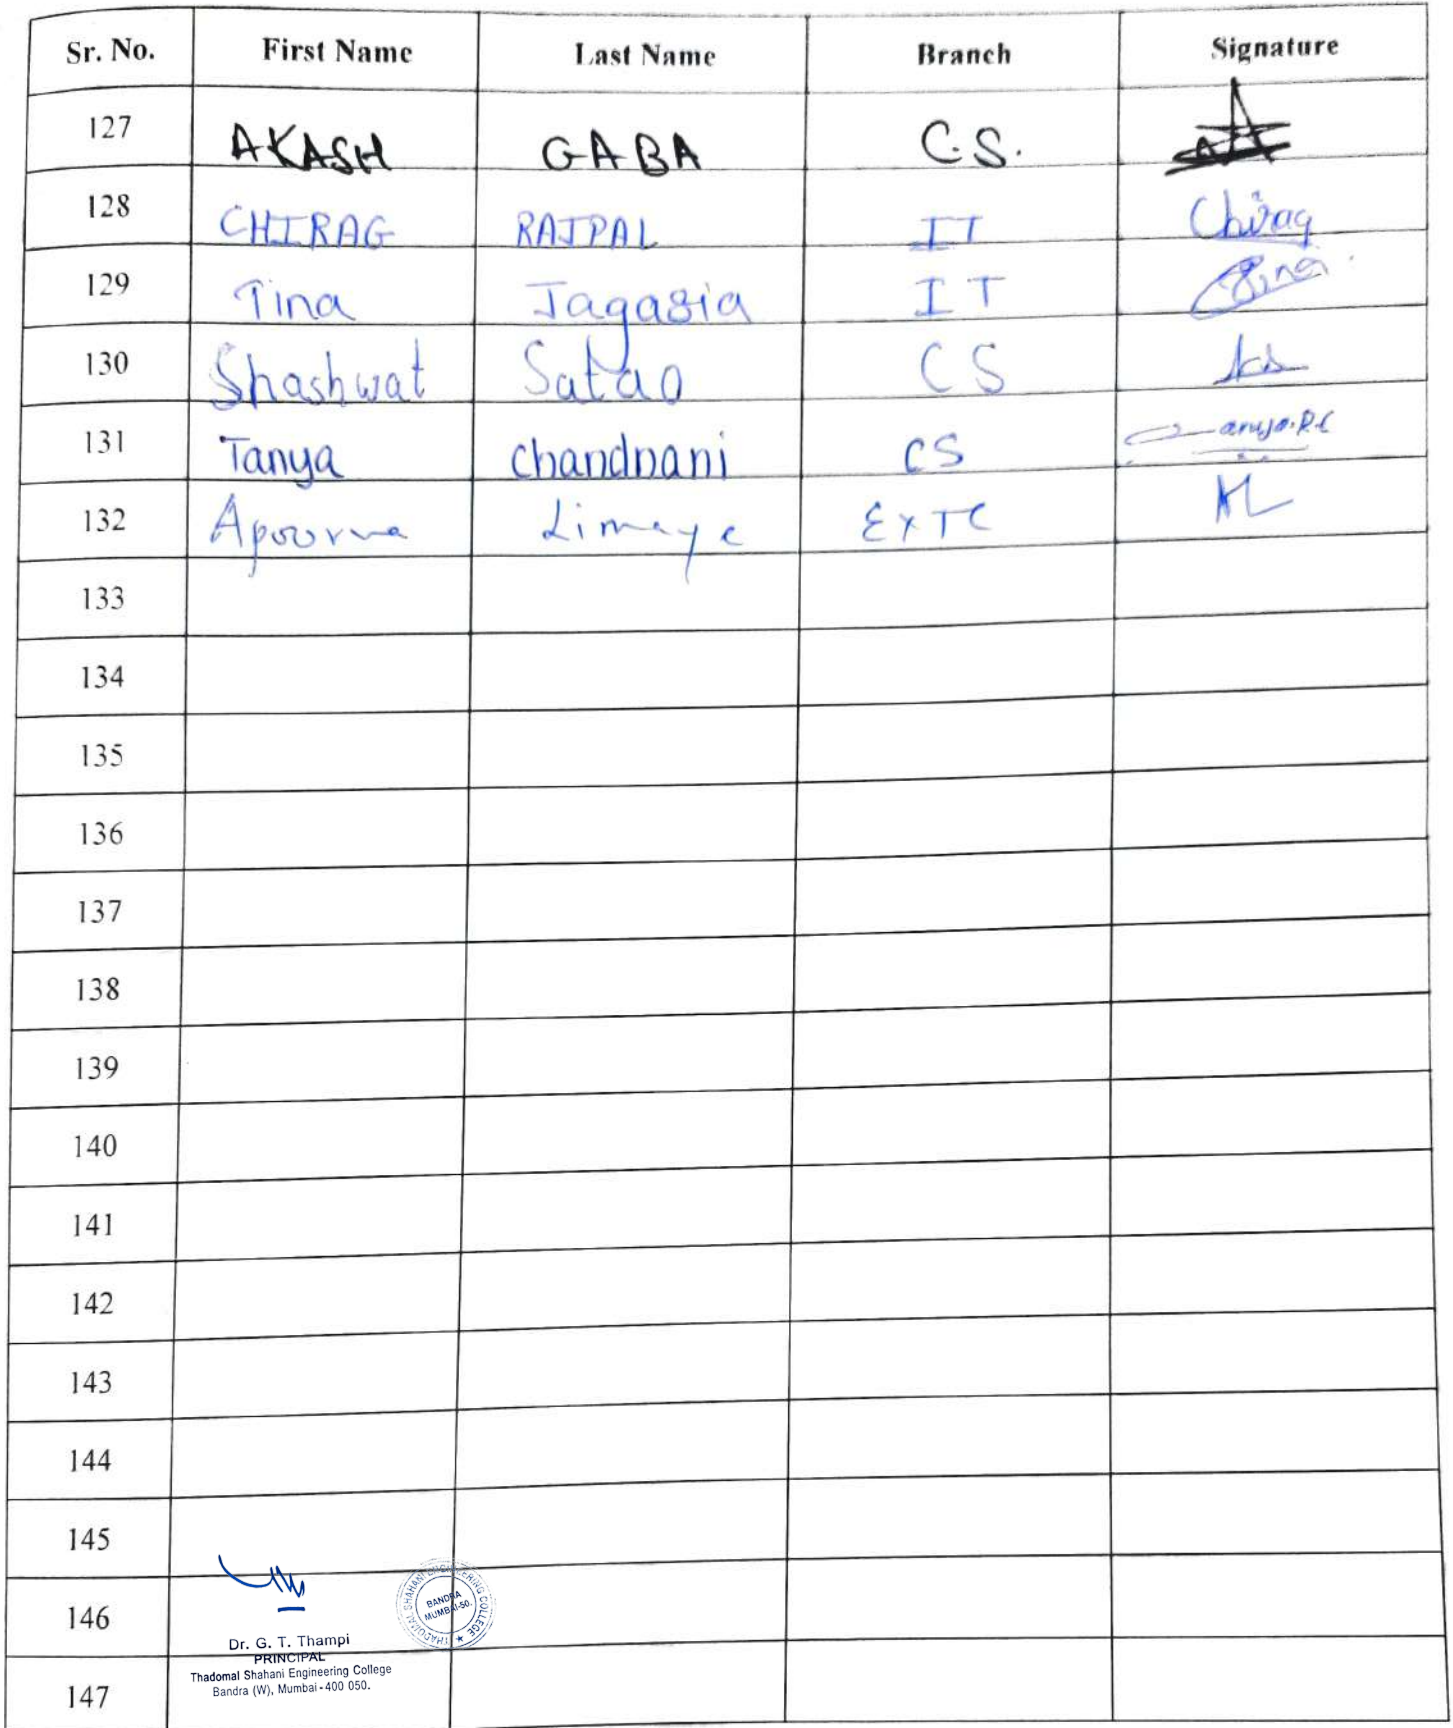 Sr. No. First Name Last Name Branch Signature
127 AKASH GABA C.S.
128 CHIRAG RAJPAL IT Chirag
129 Tina Jagasia IT Tina
130 Shashwat Satao CS
131 Tanya Chandnani CS
132 Apoorva Limaye EXTC AL
133
134
135
136
137
138
139
140
141
142
143
144
145
146
Dr. G. T. Thampi
PRINCIPAL
Thadomal Shahani Engineering College
Bandra (W), Mumbai - 400 050.
THADOMAL SHAHANI ENGINEERING COLLEGE ★
BANDRA
MUMBAI-50.
147